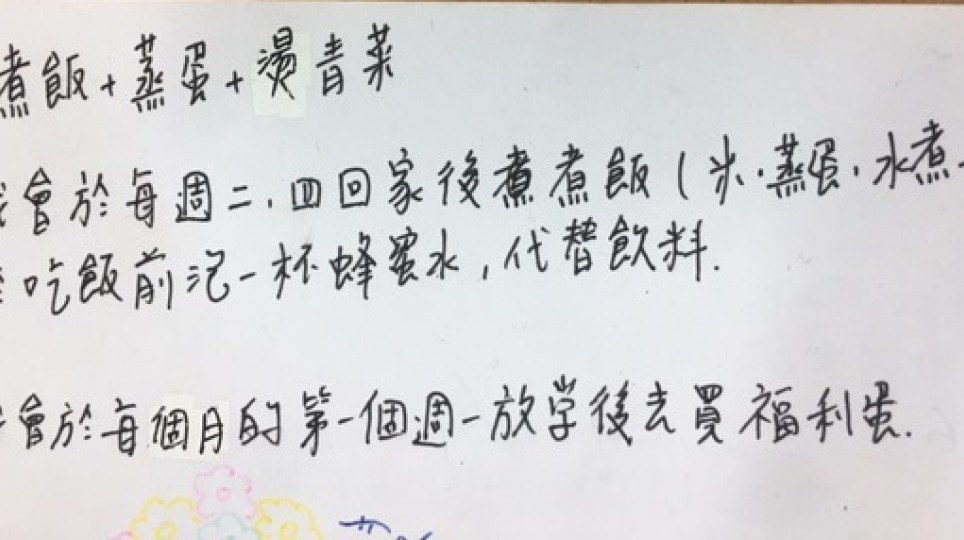 煮飯+蒸蛋+燙青菜
會於每週二.四回家後煮煮飯(米.蒸蛋.水煮
吃飯前泡一杯蜂蜜水,代替飲料.
會於每個月的第一個週一放学後去買福利蛋.